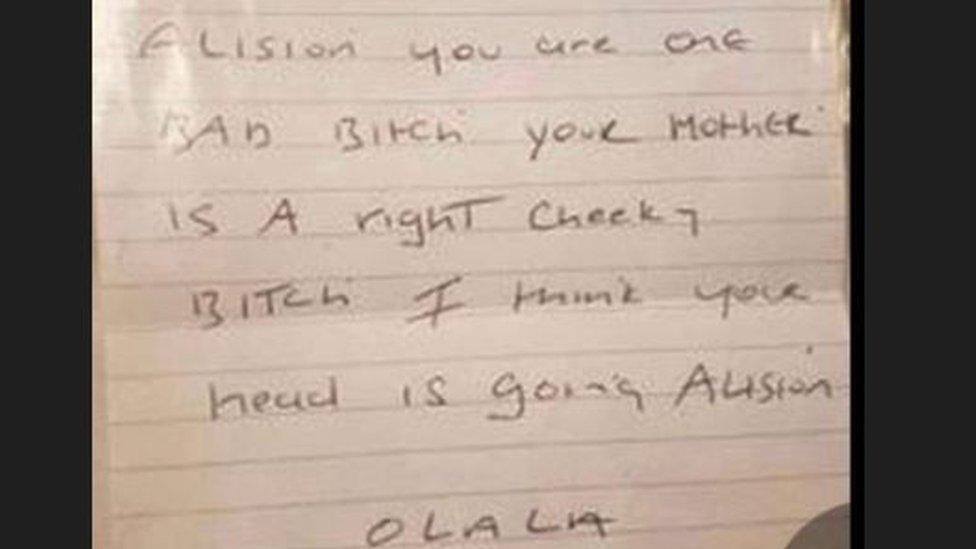 ALISION you are one
BAD BITCH your MOTHER
IS A right cheeky
BITCH I think your
head is going ALISION
OLALA